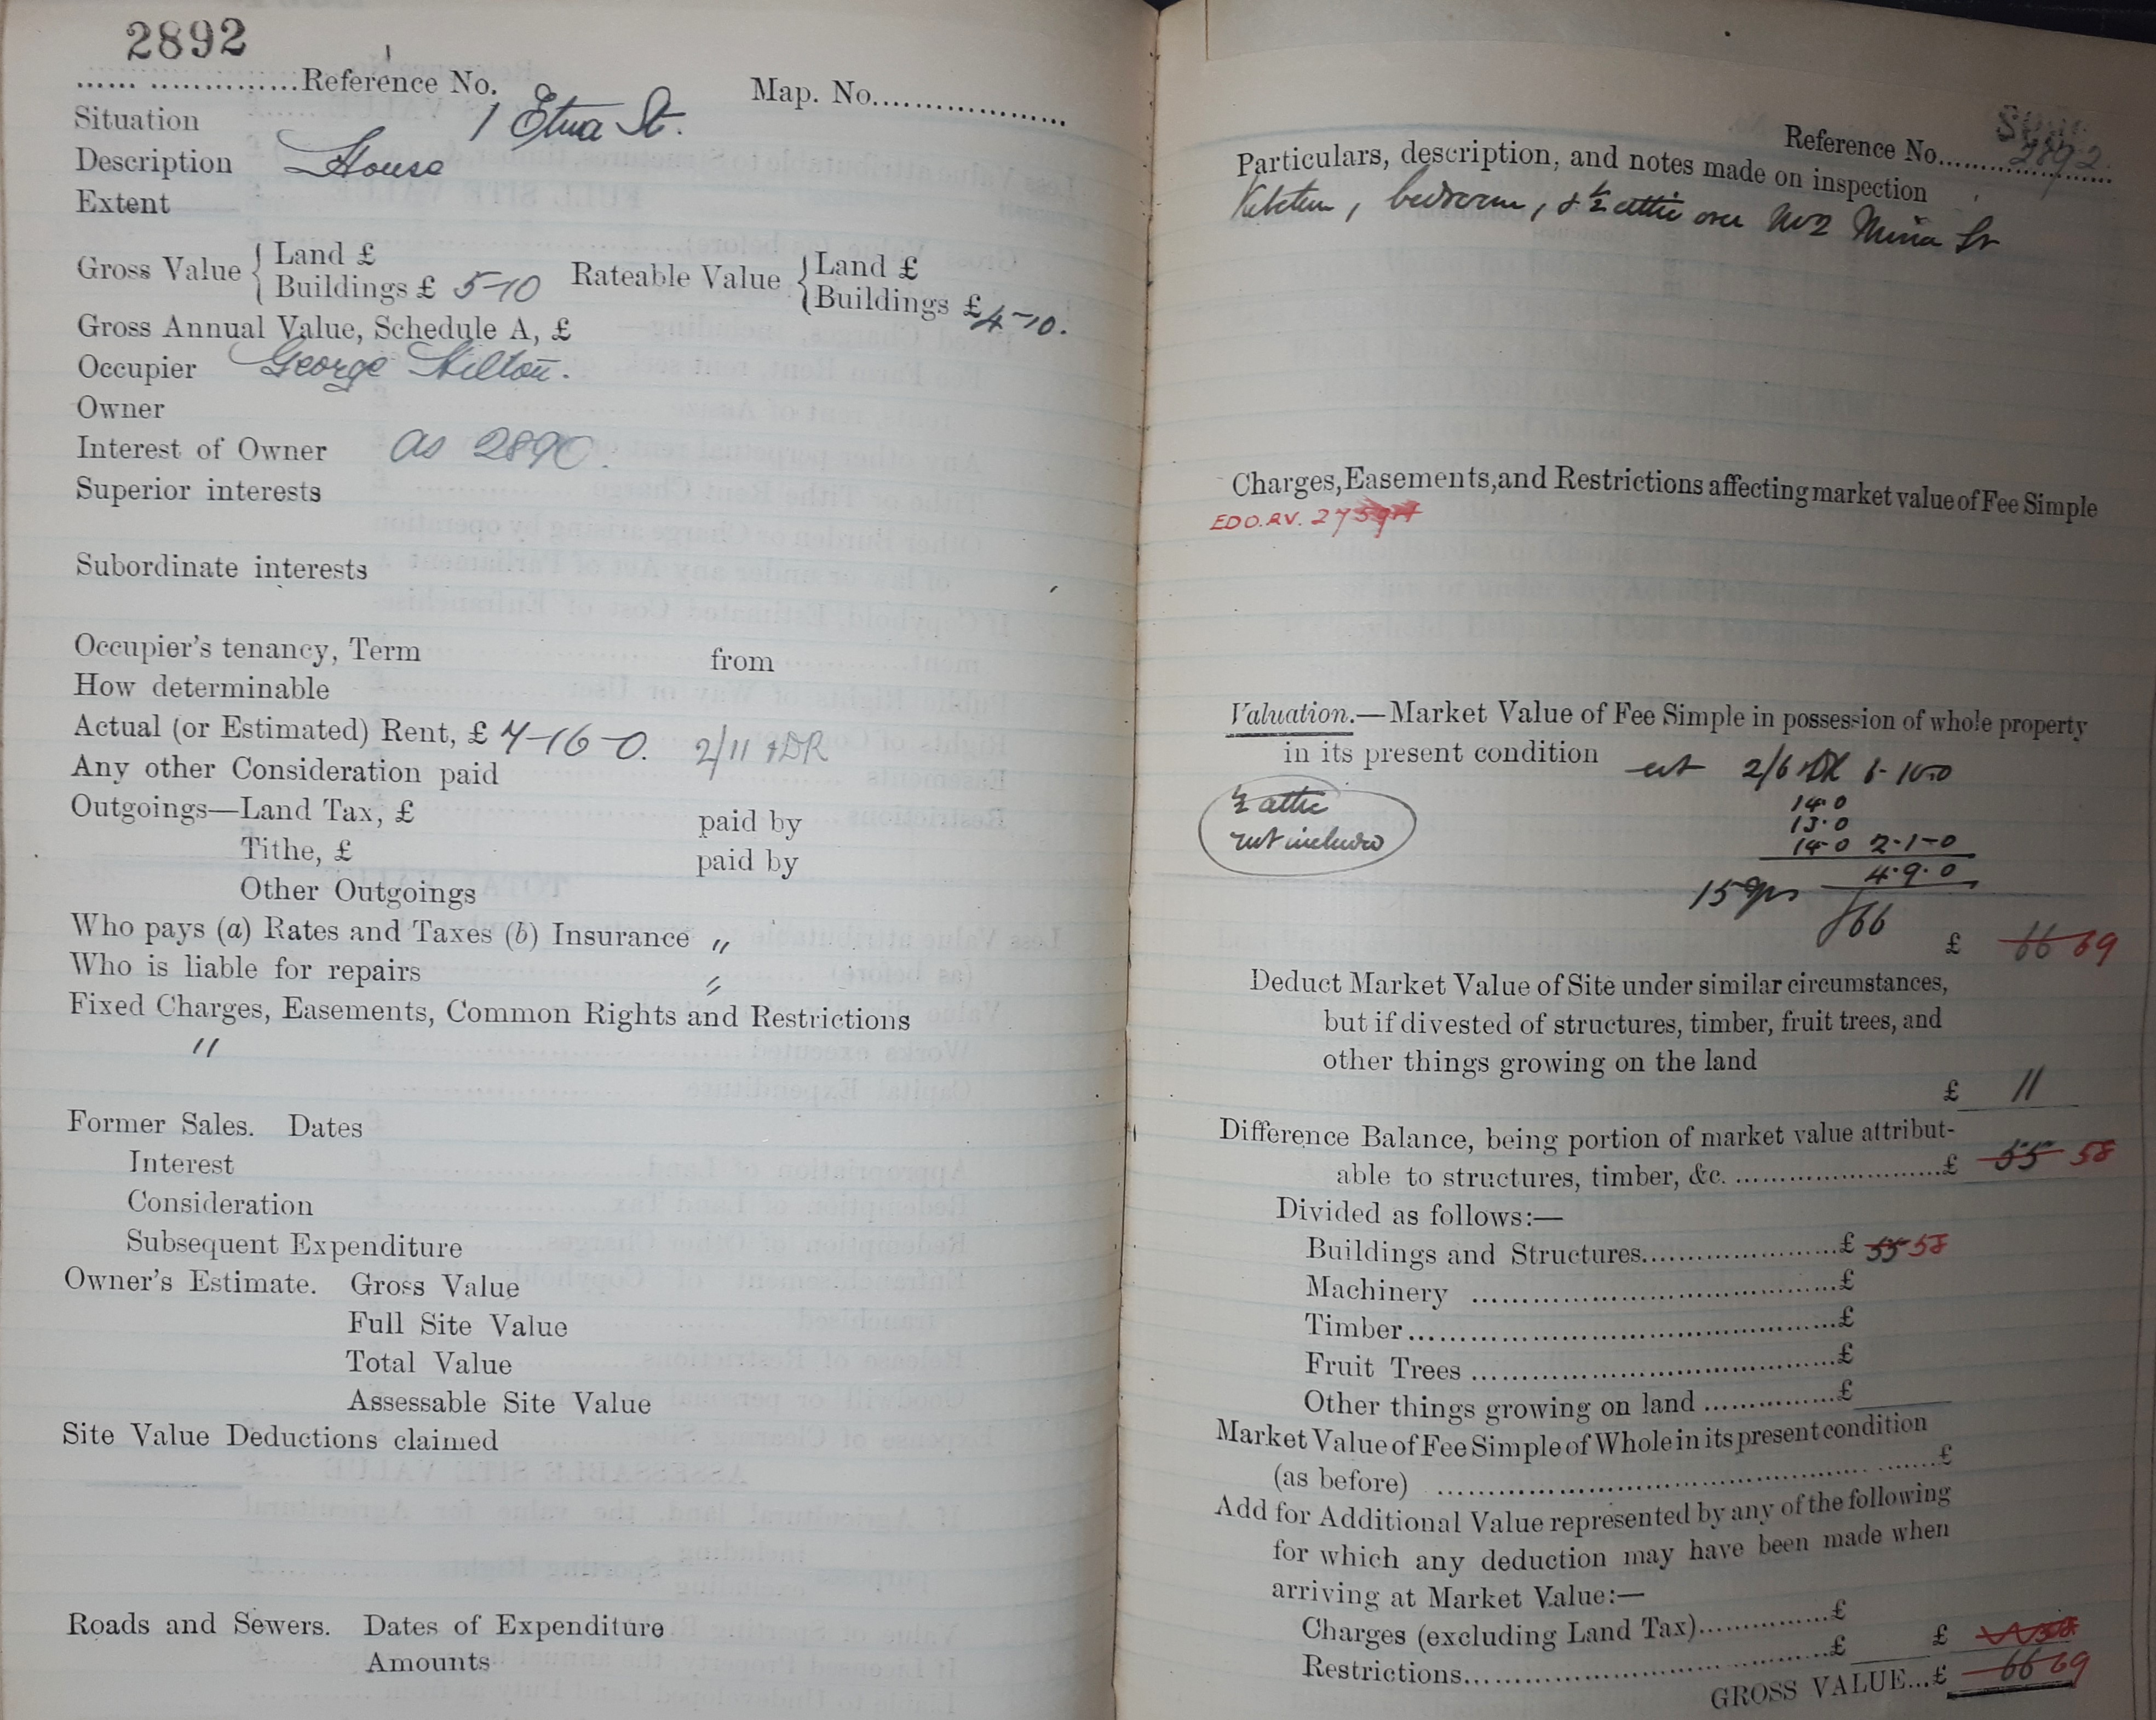 2892
Reference No. Map. No.
Situation 1 Etna St.
Description House
Extent
Gross Value { Land £
Buildings £ 5-10 Rateable Value { Land £
Buildings £ 4-10.
Gross Annual Value, Schedule A, £
Occupier George Hilton.
Owner
Interest of Owner as 2890.
Superior interests
Subordinate interests
Occupier's tenancy, Term from
How determinable
Actual (or Estimated) Rent, £ 7-16-0. 2/11 + DR
Any other Consideration paid
Outgoings—Land Tax, £ paid by
Tithe, £ paid by
Other Outgoings
Who pays (a) Rates and Taxes (b) Insurance "
Who is liable for repairs "
Fixed Charges, Easements, Common Rights and Restrictions
"
Former Sales. Dates
Interest
Consideration
Subsequent Expenditure
Owner's Estimate. Gross Value
Full Site Value
Total Value
Assessable Site Value
Site Value Deductions claimed
Roads and Sewers. Dates of Expenditure
Amounts
Reference No. 2892.
Particulars, description, and notes made on inspection
Kitchen, bedroom, & ½ attic over No 2 St
Charges, Easements, and Restrictions affecting market value of Fee Simple
EDO. RV. 275
Valuation.—Market Value of Fee Simple in possession of whole property
in its present condition est 2/6 + DR 6-10-0
14.0
13.0
14.0 2-1-0
4.9.0
½ attic
not included
15 yrs £66
£ 66 69
Deduct Market Value of Site under similar circumstances,
but if divested of structures, timber, fruit trees, and
other things growing on the land
£ 11
Difference Balance, being portion of market value attribut-
able to structures, timber, &c. £ 55 58
Divided as follows:—
Buildings and Structures £ 55 58
Machinery £
Timber £
Fruit Trees £
Other things growing on land £
Market Value of Fee Simple of Whole in its present condition
(as before) £
Add for Additional Value represented by any of the following
for which any deduction may have been made when
arriving at Market Value:—
Charges (excluding Land Tax) £
Restrictions £ £
GROSS VALUE...£ 66 69